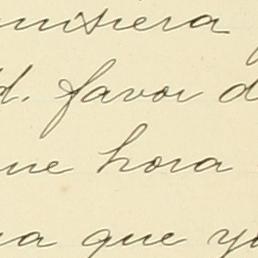 quisiera
d. favor d
ue hora
a que yo